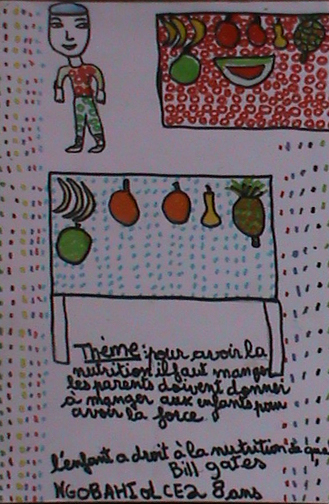 Thème: pour avoir la
nutrition il faut manger
les parents doivent donner
à manger aux enfants pour
avoir la force
l'enfant a droit à la nutrition de
Bill gates
NGOBAHI CE2 8ans